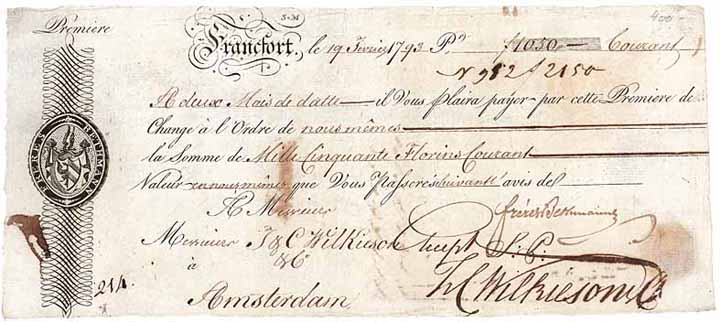 Première
S.M
400
Francfort, le 19 Fevrier 1793 Pr. f1050 Courant
No 952 f 2150
A deux Mois de datte il Vous plaira payer par cette Première de
Change à l'Ordre de nous mêmes
la Somme de Mille Cinquante Florins Courant
Valeur en nous mêmes que Vous Passerés suivant l'avis de
FRERES BETHMANN
A Messieurs
frères Bethmann
Messieurs J & C Wilkieson
& Co
accept S. P.
à
214
Amsterdam
J C Wilkieson & Co